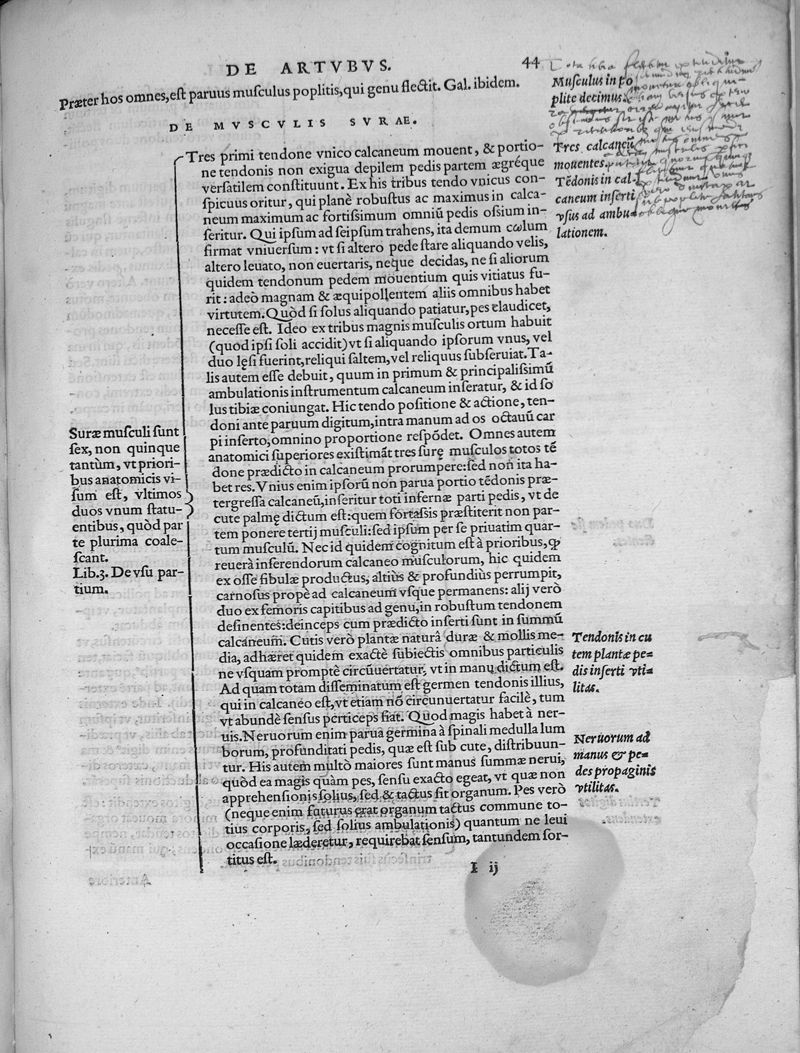 DE ARTVBVS. 44
Præter hos omnes,est paruus musculus poplitis,qui genu flectit. Gal. ibidem.
Musculus in po
plite decimus.
DE MVSCVLIS SVRAE.
Tres primi tendone vnico calcaneum mouent, & portio-
ne tendonis non exigua depilem pedis partem ægréque
versatilem constituunt. Ex his tribus tendo vnicus con-
spicuus oritur, qui planè robustus ac maximus in calca-
neum maximum ac fortissimum omniũ pedis ossium in-
seritur. Qui ipsum ad seipsum trahens, ita demum cœlum
firmat vniuersum: vt si altero pede stare aliquando velis,
altero leuato, non euertaris, neque decidas, ne si aliorum
quidem tendonum pedem mouentium quis vitiatus fu-
rit: adeò magnam & æquipollentem aliis omnibus habet
virtutem.Quòd si solus aliquando patiatur,pes claudicet,
necesse est. Ideo ex tribus magnis musculis ortum habuit
(quod ipsi soli accidit)vt si aliquando ipsorum vnus, vel
duo lęsi fuerint,reliqui saltem,vel reliquus subseruiat.Ta-
lis autem esse debuit, quum in primum & principalissimũ
ambulationis instrumentum calcaneum inseratur, & id so
lus tibiæ coniungat. Hic tendo positione & actione, ten-
doni ante paruum digitum,intra manum ad os octauũ car
pi inserto,omnino proportione respõdet. Omnes autem
anatomici superiores existimãt tres surę musculos totos tẽ
done prædicto in calcaneum prorumpere:sed non ita ha-
bet res.Vnius enim ipsorũ non parua portio tẽdonis præ-
tergressa calcaneũ,inseritur toti infernæ parti pedis, vt de
cute palmę dictum est:quem fortassis præstiterit non par-
tem ponere tertij musculi:sed ipsum per se priuatim quar-
tum musculũ. Nec id quidem cognitum est à prioribus, ꝙ
reuerà inserendorum calcaneo musculorum, hic quidem
ex osse fibulæ productus, altiùs & profundiùs perrumpit,
carnosus propè ad calcaneum vsque permanens: alij verò
duo ex femoris capitibus ad genu,in robustum tendonem
desinentes:deinceps cum prædicto inserti sunt in summũ
calcaneum. Cutis verò plantæ naturâ duræ & mollis me-
dia, adhæret quidem exactè subiectis omnibus particulis
ne vsquam promptè circũuertatur, vt in manu dictum est.
Ad quam totam disseminatum est germen tendonis illius,
qui in calcaneo est,vt etiam nõ circunuertatur facilè, tum
vt abundè sensus perticeps fiat. Quod magis habet à ner-
uis.Neruorum enim parua germina à spinali medulla lum
borum, profunditati pedis, quæ est sub cute, distribuun-
tur. His autem multò maiores sunt manus summæ nerui,
quòd ea magis quàm pes, sensu exacto egeat, vt quæ non
apprehensionis solius, sed & tactus sit organum. Pes verò
(neque enim futurus erat organum tactus commune to-
tius corporis, sed solius ambulationis) quantum ne leui
occasione læderetur, requirebat sensum, tantundem sor-
titus est.
I ij
Tres calcaneũ
mouentes.
Tẽdonis in cal
caneum inserti
vsus ad ambu-
lationem.
Suræ musculi sunt
sex, non quinque
tantùm, vt priori-
bus anatomicis vi-
sum est, vltimos
duos vnum statu-
entibus, quòd par
te plurima coale-
scant.
Lib.3. De vsu par-
tium.
Tendonis in cu
tem plantæ pe-
dis inserti vti-
litas.
Neruorum ad
manus & pe-
des propaginis
vtilitas.